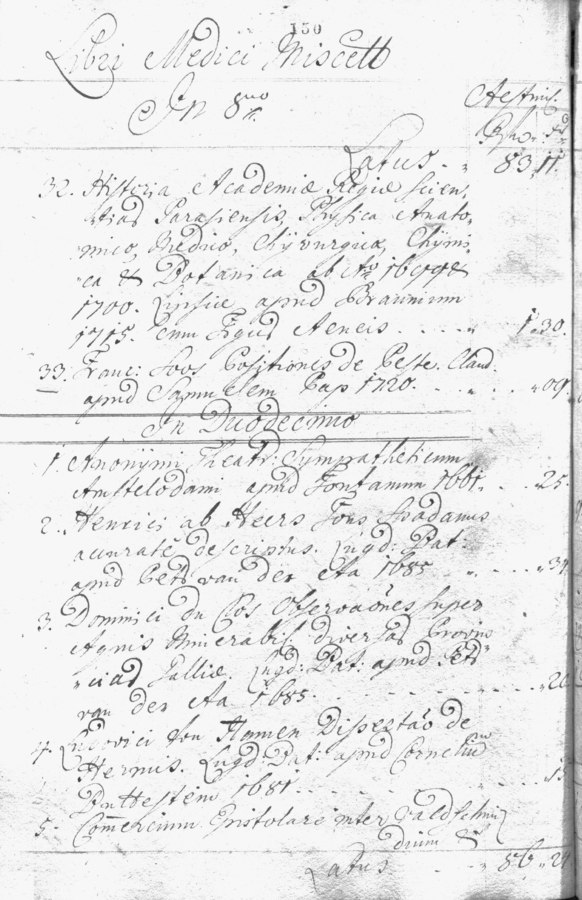 150
Libri Medici Miscell
In 8vo
Aestim.
Rho. xr
Latus. 83. 11.
32. Historia Academiæ Regiæ Scien,
tias Parisiensis, Physica Anato,
mico, Medico, Chyrurgica, Chymi
ca & Botanica ab Ao 1699 &
1700. Lipsiæ apud Braunium
1715. cum Figuris Aeneis . . . . 1. 30.
33. Franc: Soos Positiones de Peste. Claud:
apud Samuelem Pap 1720. . . . 09.
In Duodecimo
1. Anonymi Theatr: Sympatheticum
Amstelodami apud Fontanum 1661. . . 25.
2. Henrici ab Heers Fons Spadanus
accuraté descriptus. Lugd: Bat:
apud Petr van der Aa 1685 . . . . 34
3. Dominici du Clos Observaōnes super
Aquis Minerabil: diversas Provin
cias Galliæ. Lugd: Bat: apud Petr
van der Aa 1685. . . . . . . 20
4. Ludovici von Hamen Dissertaō de
Herniis. Lugd: Bat: apud Cornelium
Bouttesteinu 1681. . . . . 15
5. Com̄ercium Epistolare inter Valdschmi
dium &
Latus . . . 86 „ 24